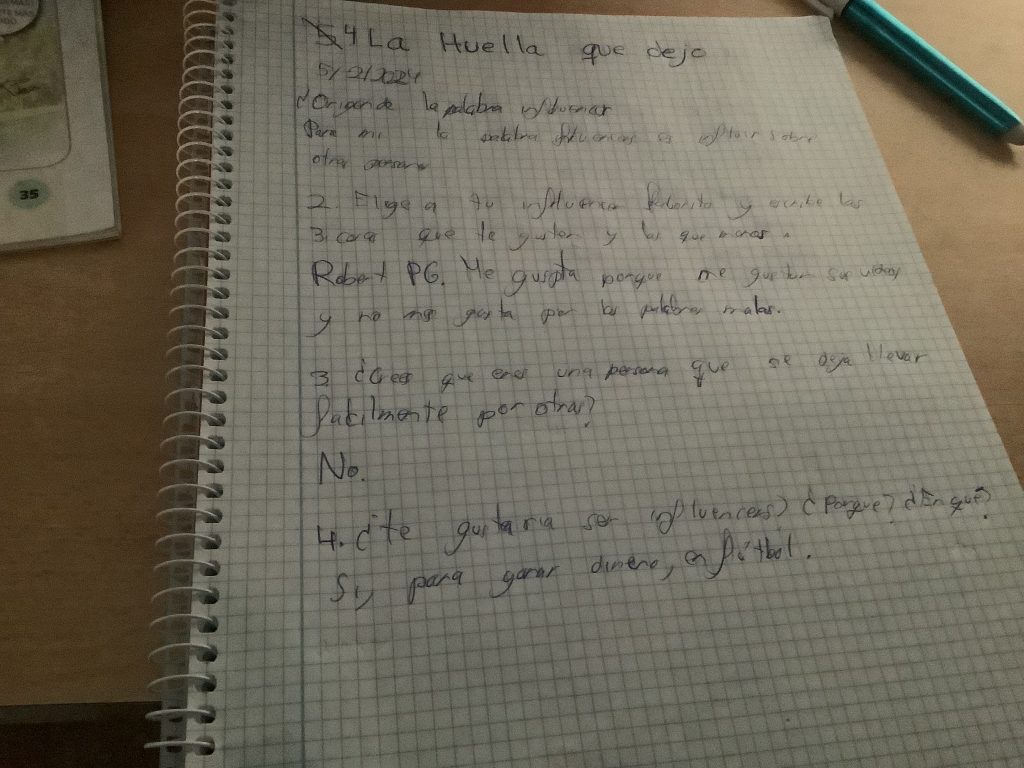 4 La Huella que dejo
5/2/2024
Origen de la palabra influencer
Para mi la palabra es influir sobre
otra persona
2. Elige a tu influencer faborito y escribe las
3 cosas que te gustan y las que menos.
Robert PG. Me gusta porque me gustan sus videos
y no me gusta por las palabra malas.
3 ¿Crees que eres una persona que se deja llevar
facilmente por otras?
No.
4. ¿te gustaria ser influencers? ¿Porque? ¿En qué?
Si, para ganar dinero, en fútbol.
35